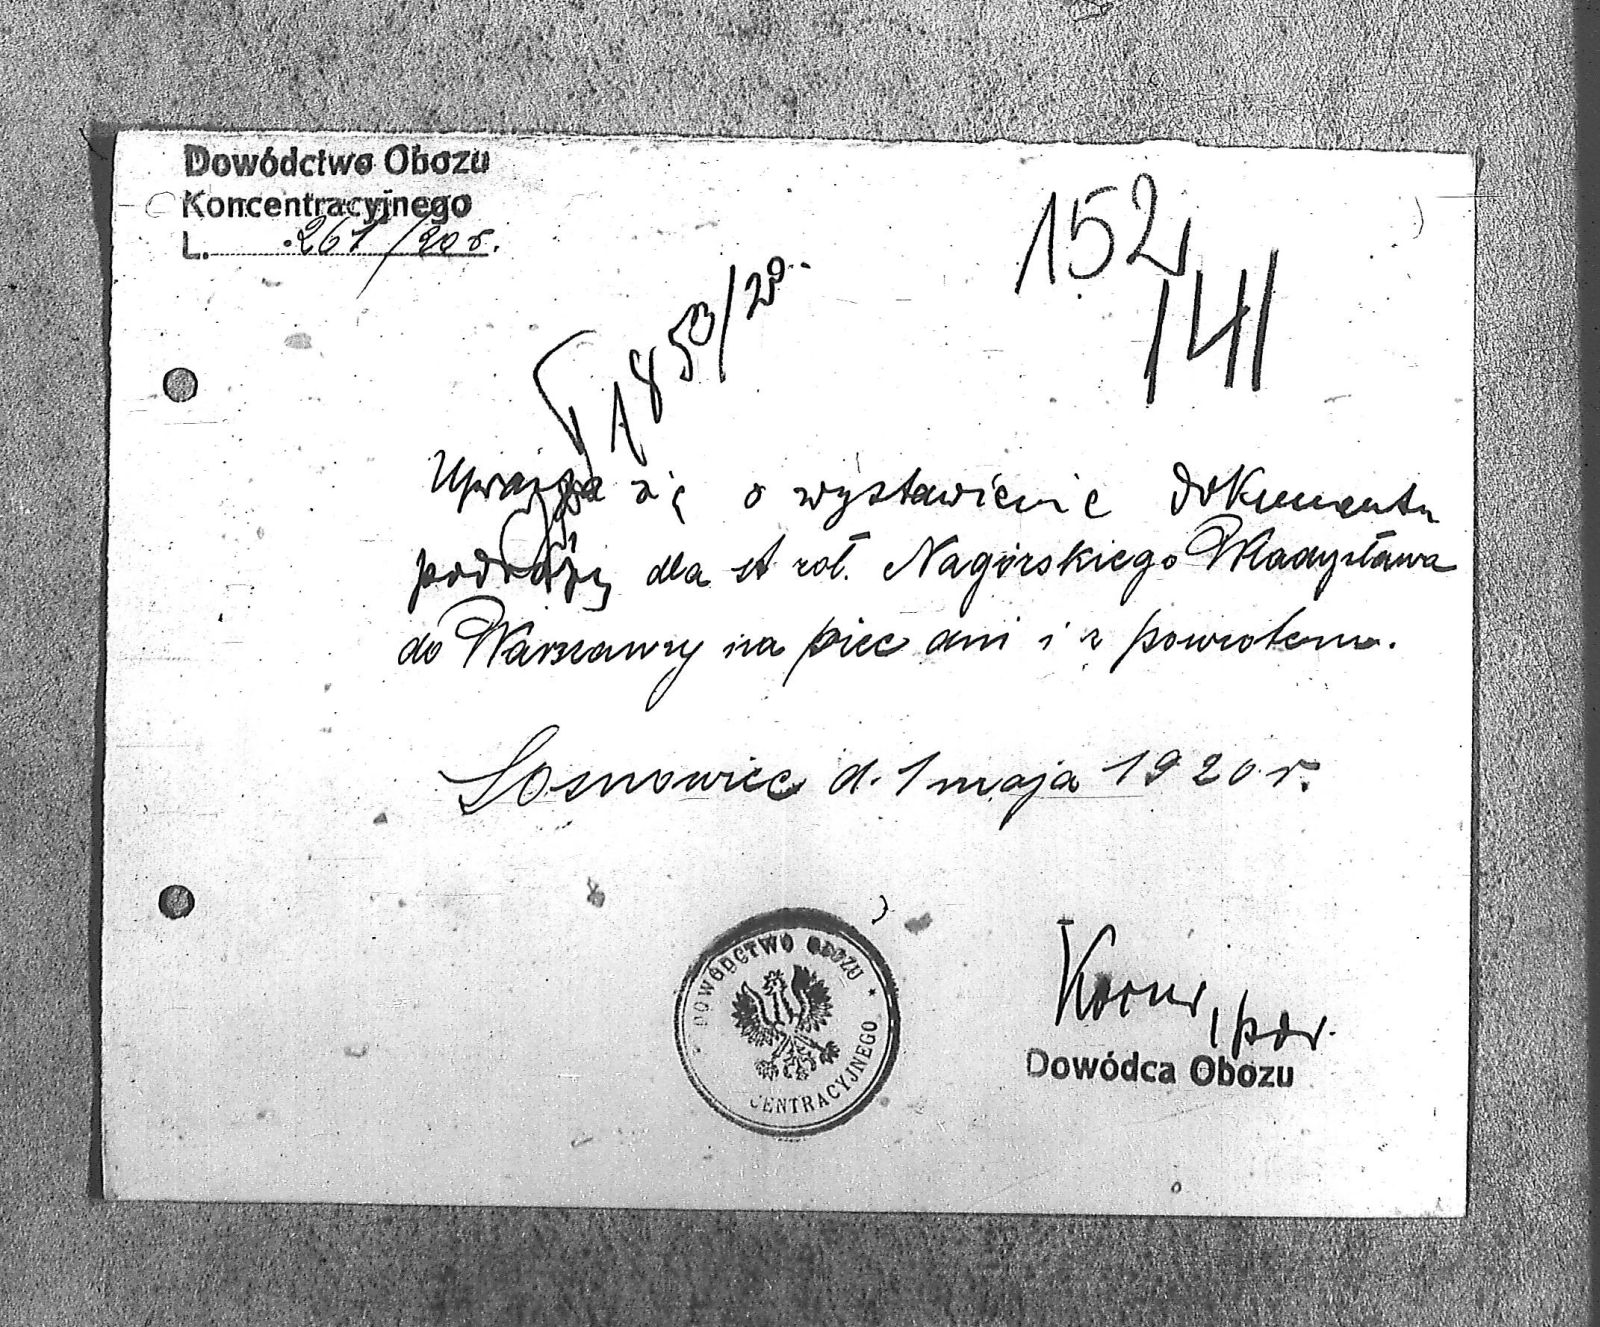 Dowództwo Obozu
Koncentracyjnego
L. 261/20 r.
152
141
1850/20.
Uprasza się o wystawienie dokumentu
podróży dla st żoł. Nagórskiego Władysława
do Warszawy na pięc dni i z powrotem.
Sosnowiec d. 1 maja 1920 r.
DOWÓDCTWO OBOZU
CENTRACYJNEGO
por.
Dowódca Obozu